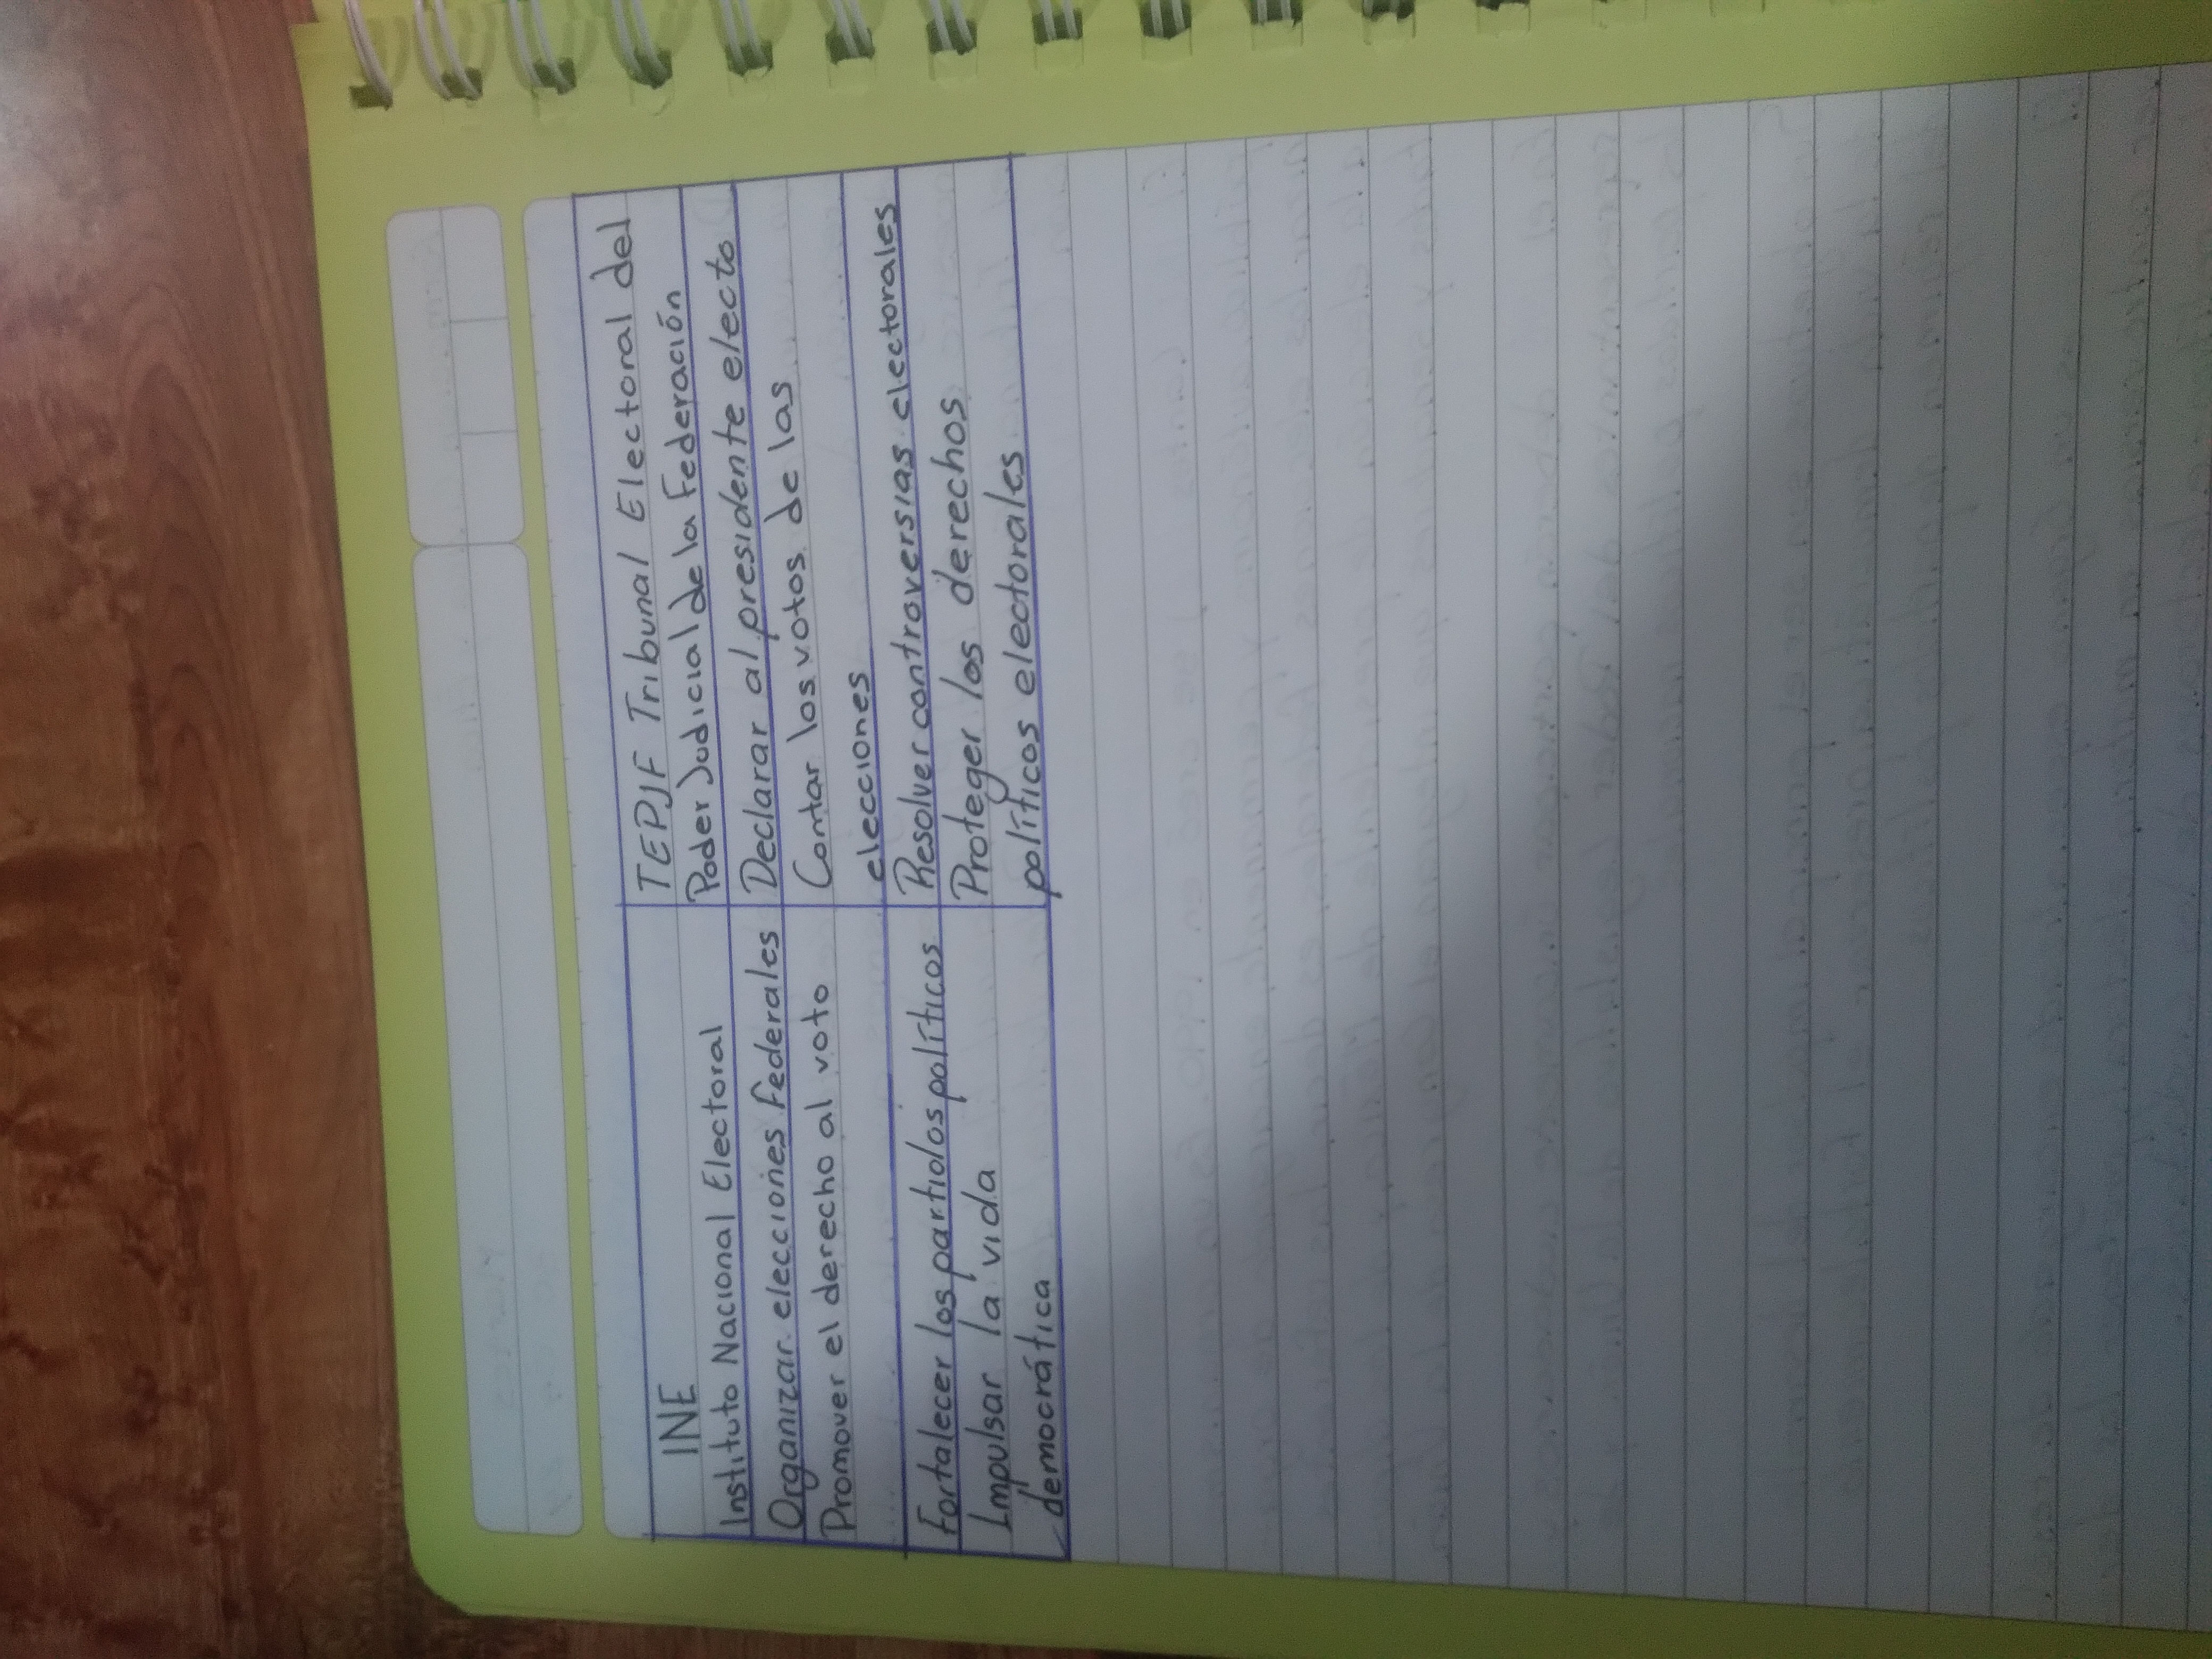 INE
Instituto Nacional Electoral
Organizar elecciones federales
Promover el derecho al voto
Fortalecer los partidos políticos
Impulsar la vida
democrática
TEPJF Tribunal Electoral del
Poder Judicial de la Federación
Declarar al presidente electo
Contar los votos de las
elecciones
Resolver controversias electorales
Proteger los derechos
políticos electorales